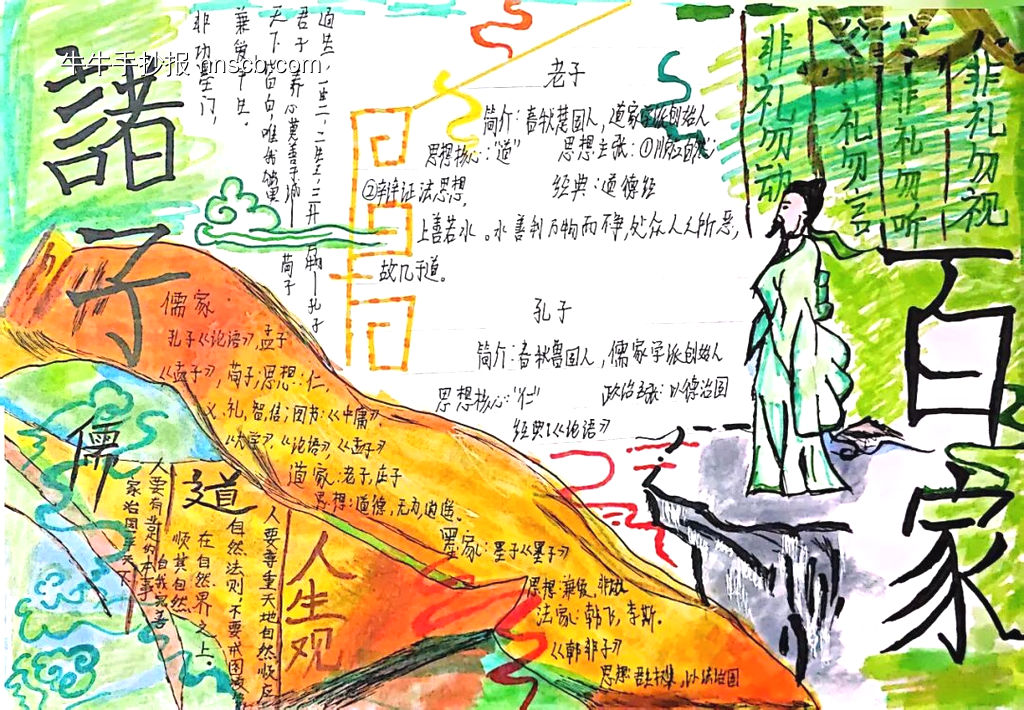 牛牛手抄报 nnscb.com
諸子
百家
老子
简介：春秋楚国人，道家学派创始人
思想核心："道" 思想主张：①顺应自然；
②辩证法思想
经典：道德经
上善若水。水善利万物而不争，处众人之所恶，
故几于道。
孔子
简介：春秋鲁国人，儒家学派创始人
思想核心："仁" 政治主张：以德治国
经典：《论语》
非礼勿视
非礼勿听
非礼勿言
非礼勿动
君子养心莫善于诚——荀子
儒家
孔子《论语》，孟子
《孟子》，荀子；思想：仁
义，礼，智，信；四书：《中庸》，
《大学》，《论语》，《孟子》
道家：老子，庄子
思想：道德，无为逍遥。
墨家：墨子《墨子》
思想：兼爱，非攻
法家：韩非，李斯。
《韩非子》
儒
道
人生观
人要尊重天地自然顺应
自然法则，不要
在自然界之上。
顺其自然
自我完善
人要有
本事
家治国平天下